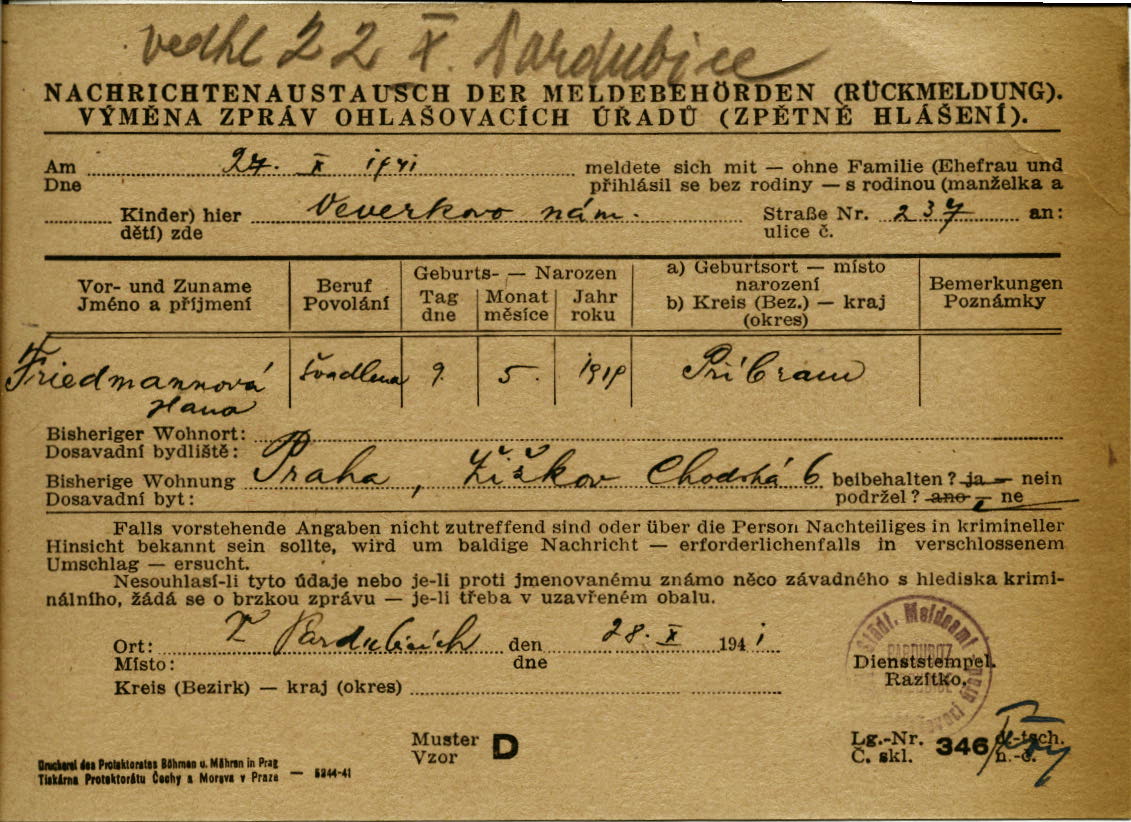 22 X. Pardubice
NACHRICHTENAUSTAUSCH DER MELDEBEHÖRDEN (RÜCKMELDUNG).
VÝMĚNA ZPRÁV OHLAŠOVACÍCH ÚŘADŮ (ZPĚTNÉ HLÁŠENÍ).
Am 27. X 1941 meldete sich mit — ohne Familie (Ehefrau und
Dne přihlásil se bez rodiny — s rodinou (manželka a
Kinder) hier Veverkovo nám. Straße Nr. 237 an:
dětí) zde ulice č.
Vor- und Zuname Beruf Geburts- — Narozen a) Geburtsort — místo Bemerkungen
Jméno a příjmení Povolání Tag Monat Jahr narození Poznámky
dne měsíce roku b) Kreis (Bez.) — kraj
(okres)
Friedmannová švadlena 9. 5. 1919 Příbram
Hana
Bisheriger Wohnort:
Dosavadní bydliště:
Bisherige Wohnung Praha, Žižkov Chodská 6 beibehalten? ja — nein
Dosavadní byt: podržel? ano — ne
Falls vorstehende Angaben nicht zutreffend sind oder über die Person Nachteiliges in krimineller
Hinsicht bekannt sein sollte, wird um baldige Nachricht — erforderlichenfalls in verschlossenem
Umschlag — ersucht.
Nesouhlasí-li tyto údaje nebo je-li proti jmenovanému známo něco závadného s hlediska krimi-
nálního, žádá se o brzkou zprávu — je-li třeba v uzavřeném obalu.
Ort: V Pardubicích den 28. X 1941
Místo: dne
Städt. Meldeamt
Dienststempel.
Razítko.
Kreis (Bezirk) — kraj (okres)
Muster D
Vzor
Lg.-Nr. 346 d.-tsch.
Č. skl. n.-č.
Druckerei des Protektorates Böhmen u. Mähren in Prag — 5244-41
Tiskárna Protektorátu Čechy a Morava v Praze